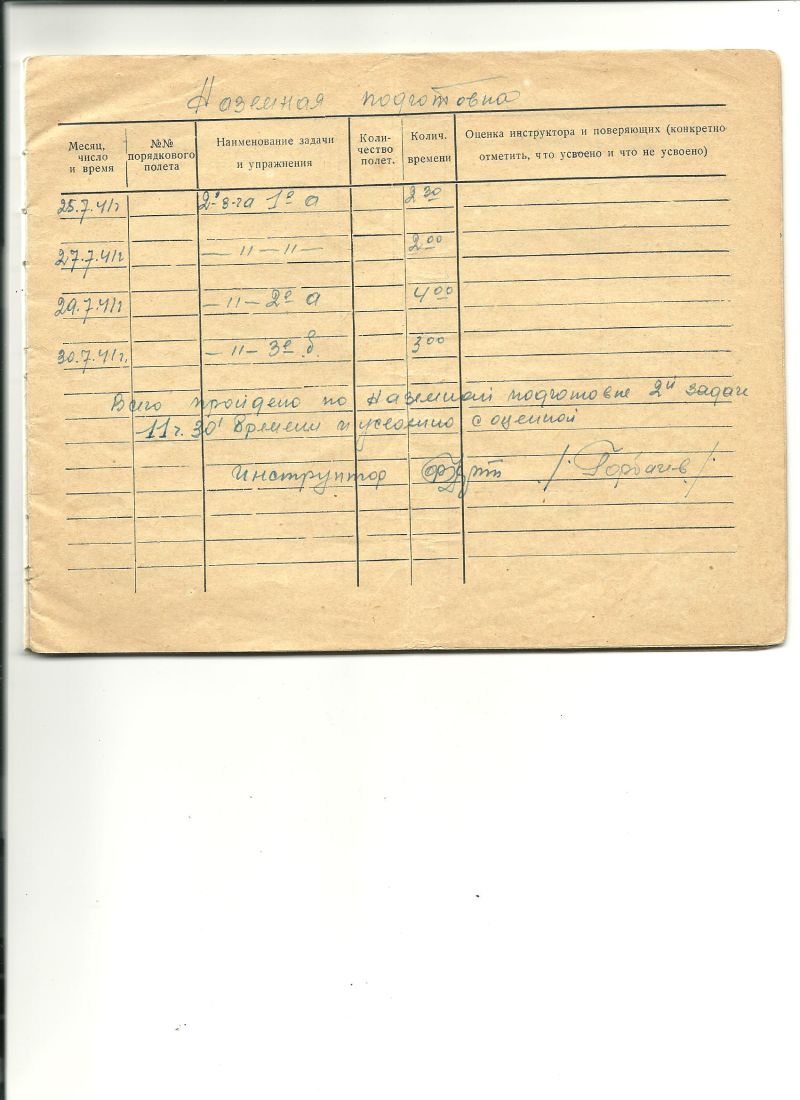 Наземная подготовка
Месяц, число и время
№№ порядкового полета
Наименование задачи и упражнения
Коли-чество полет.
Колич. времени
Оценка инструктора и поверяющих (конкретно отметить, что усвоено и что не усвоено)
25.7.41г 2я з-га 1е а 2 30
27.7.41г — 〃 — 〃 — 2 00
29.7.41г — 〃 — 2е а 4 00
30.7.41г. — 〃 — 3е б. 3 00
Всего пройдено по Наземной подготовке 2й задаче
11ч. 30' Времени и усвоено с оценкой
Инструктор / Горбачев /